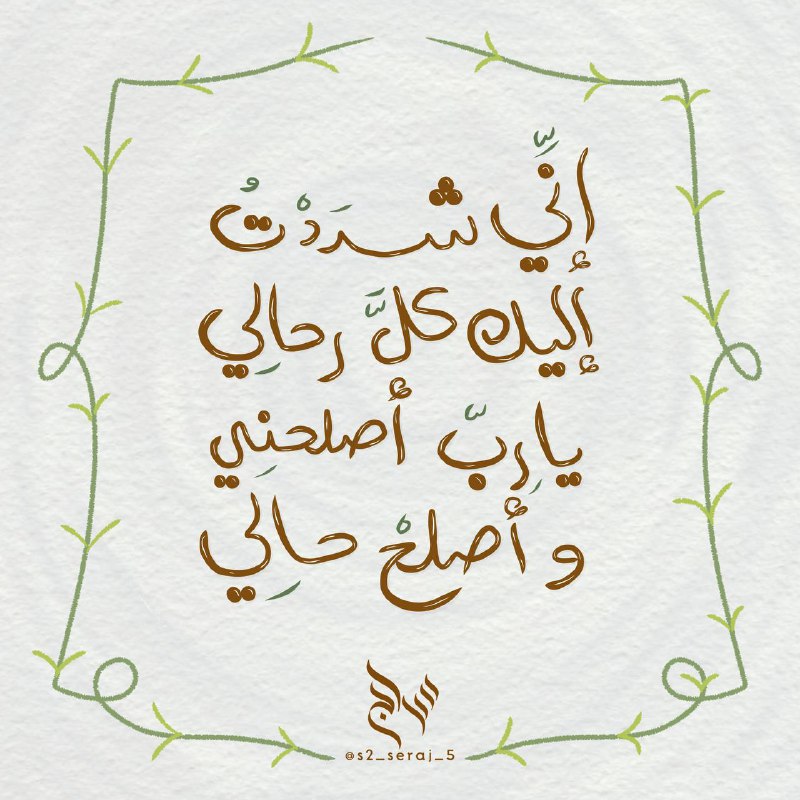 إنِّي شدَدْتُ
إليك كلَّ رحالِي
يا ربِّ أصلحنِي
و أصلحْ حالِي
سراج
@s2_seraj_5